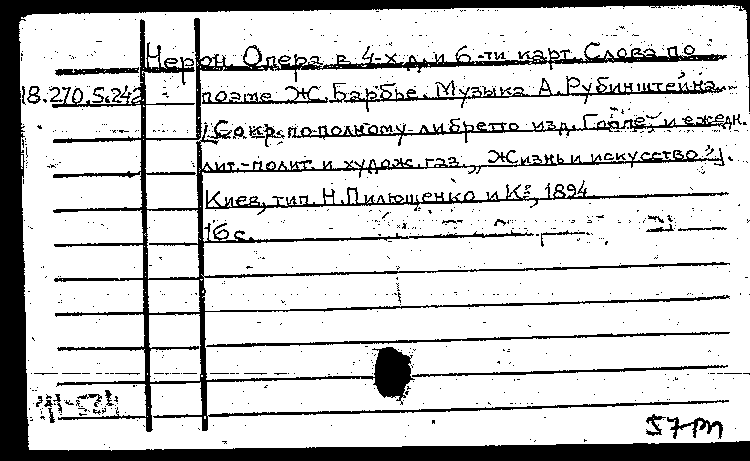 Нерон. Опера в 4-х д. и 6-ти карт. Слова по
18.270.5.242 поэме Ж. Барбье. Музыка А. Рубинштейна.
[Сокр. по полному либретто изд. Гоппе, и ежедн.
лит.-полит. и худож. газ. „Жизнь и искусство"].
Киев, тип. Н. Пилющенко и К°, 1894.
16 с.
57-рп